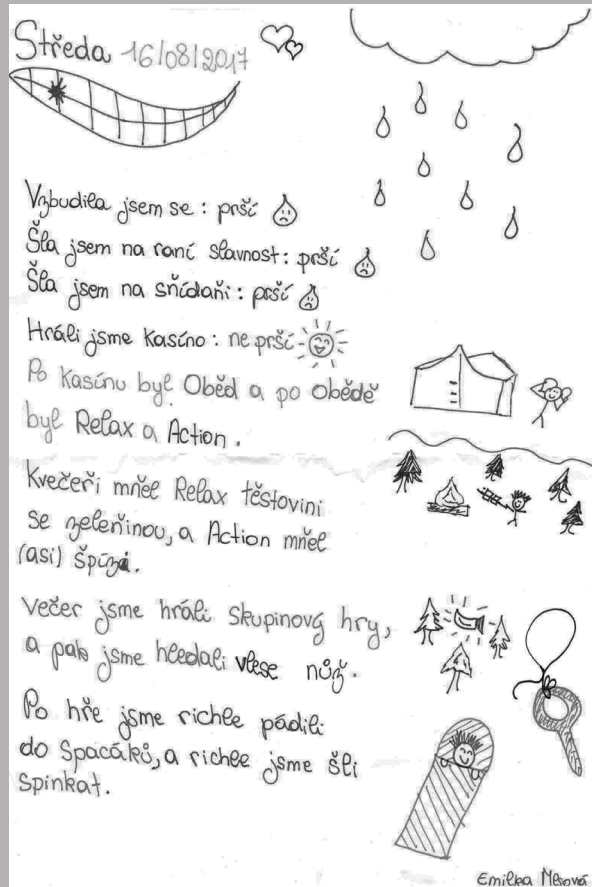 Středa 16/08/2017
Vzbudila jsem se : prší
Šla jsem na raní slavnost : prší
Šla jsem na sňídaňi : prší
Hráli jsme Kasíno : ne prší
Po Kasínu byl Oběd a po Obědě
byl Relax a Action .
Kvečeři mňel Relax těstovini
se zeleňinou, a Action mňel
(asi) špízi.
Večer jsme hráli Skupinový hry,
a pak jsme hledali vlese nůž.
Po hře jsme richle pádili
do Spacáků, a richle jsme šli
Spinkat.
Emilka